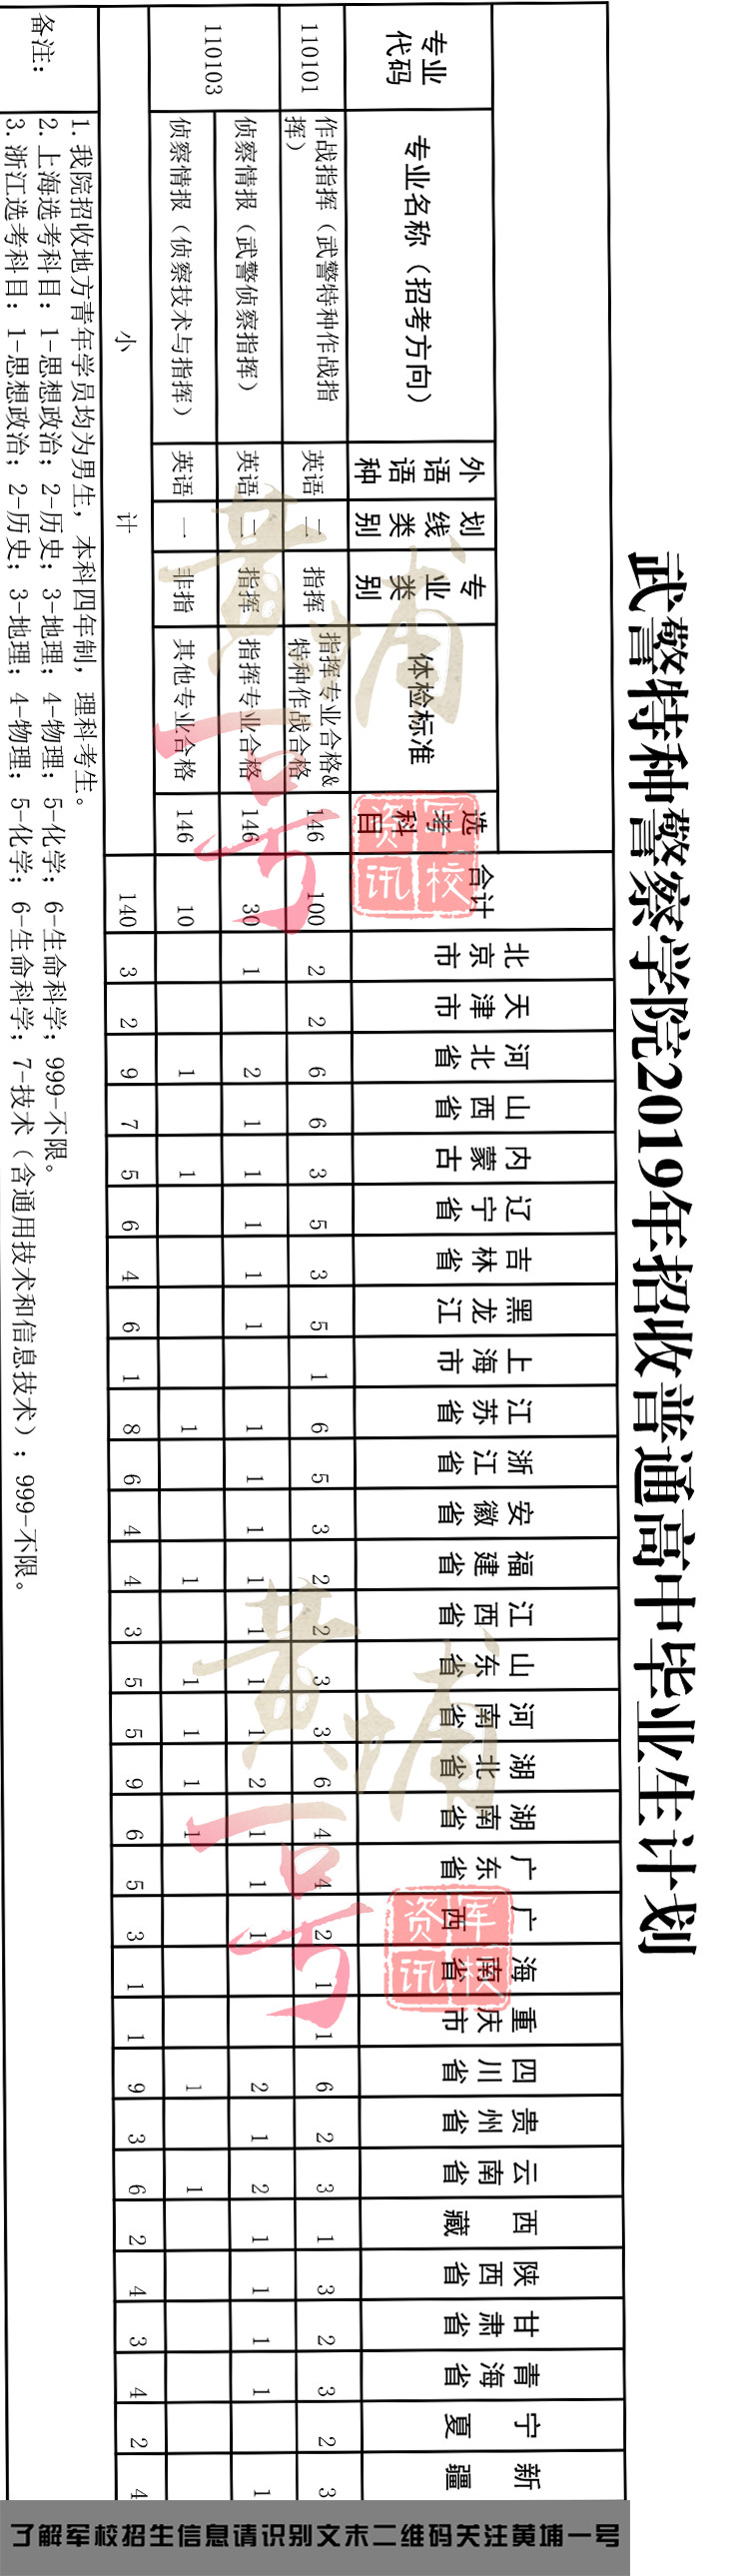 武警特种警察学院2019年招收普通高中毕业生计划
专业代码 专业名称（招考方向） 外语语种 划线类别 专业类别 体检标准 选考科目 合计 北京市 天津市 河北省 山西省 内蒙古 辽宁省 吉林省 黑龙江 上海市 江苏省 浙江省 安徽省 福建省 江西省 山东省 河南省 湖北省 湖南省 广东省 广西 海南省 重庆市 四川省 贵州省 云南省 西藏 陕西省 甘肃省 青海省 宁夏 新疆
110101 作战指挥（武警特种作战指挥） 英语 二 指挥 指挥专业合格&特种作战合格 146 100 2 2 6 6 3 5 3 5 1 6 5 3 2 2 3 3 6 4 4 2 1 1 6 2 3 1 3 2 3 2 3
110103 侦察情报（武警侦察指挥） 英语 二 指挥 指挥专业合格 146 30 1 2 1 1 1 1 1 1 1 1 1 1 1 1 2 1 1 1 2 1 2 1 1 1 1 1
侦察情报（侦察技术与指挥） 英语 一 非指 其他专业合格 146 10 1 1 1 1 1 1 1 1 1 1
小计 140 3 2 9 7 5 6 4 6 1 8 6 4 4 3 5 5 9 6 5 3 1 1 9 3 6 2 4 3 4 2 4
备注：
1. 我院招收地方青年学员均为男生，本科四年制，理科考生。
2. 上海选考科目：1-思想政治；2-历史；3-地理；4-物理；5-化学；6-生命科学；999-不限。
3. 浙江选考科目：1-思想政治；2-历史；3-地理；4-物理；5-化学；6-生命科学；7-技术（含通用技术和信息技术）；999-不限。
黄埔一号
军校资讯
黄埔一号
军校资讯
了解军校招生信息请识别文末二维码关注黄埔一号